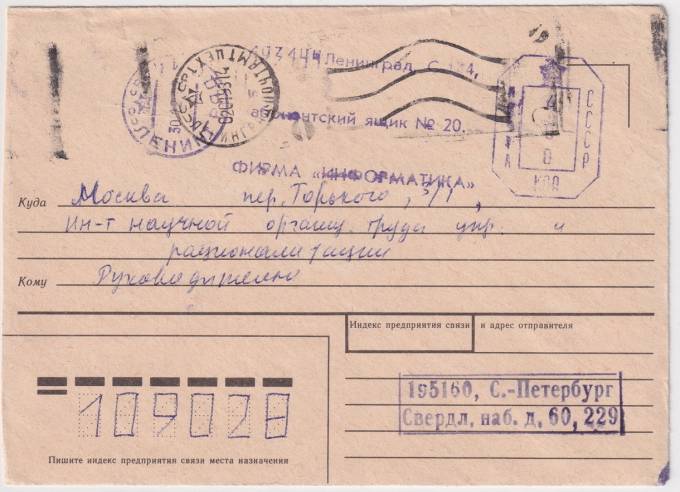 Ленинград, С-144,
абонентский ящик № 20.
ФИРМА «ИНФОРМАТИКА»
СССР
ЛЕНИН
СССР
КОП
Куда Москва пер. Горького, 3/1,
Ин-т научной органиц. труда упр. и
рационализации
Кому Руководителю
Индекс предприятия связи и адрес отправителя
195160, С.-Петербург
Свердл, наб. д, 60, 229
109028
Пишите индекс предприятия связи места назначения